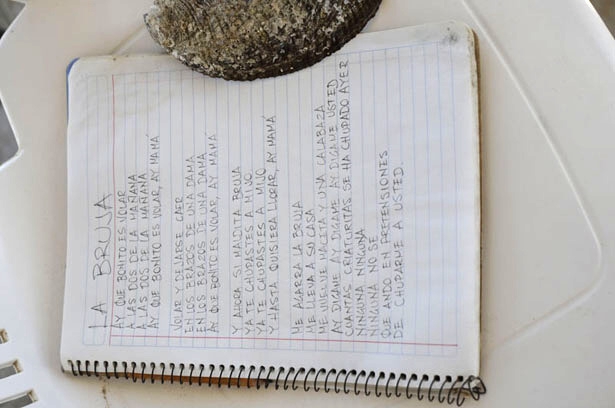 LA BRUJA
AY QUE BONITO ES VOLAR
A LAS DOS DE LA MAÑANA
A LAS DOS DE LA MAÑANA
AY QUE BONITO ES VOLAR, AY MAMÁ
VOLAR Y DEJARSE CAER
EN LOS BRAZOS DE UNA DAMA
EN LOS BRAZOS DE UNA DAMA
AY QUE BONITO ES VOLAR, AY MAMÁ
Y AHORA SI MALDITA BRUJA
YA TE CHUPASTES A MIJO
YA TE CHUPASTES A MIJO
Y HASTA QUISIERA LLORAR, AY MAMÁ
ME AGARRA LA BRUJA
ME LLEVA A SU CASA
ME VUELVE MACITA Y UNA CALABAZA
AY DIGAME AY DIGAME AY DIGAME USTED
CUANTAS CRIATURITAS SE HA CHUPADO AYER
NINGUNA NINGUNA
NINGUNA NO SE
QUE ANDO EN PRETENSIONES
DE CHUPARME A USTED.